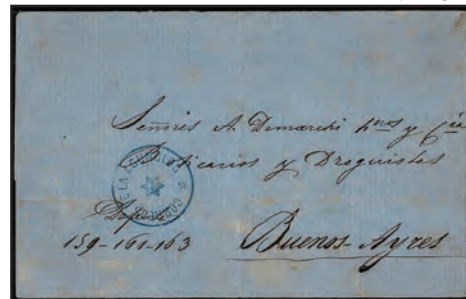 Señores A. Demarchi hnos y Cía
Boticarios y Droguistas
159-161-163 Buenos-Ayres